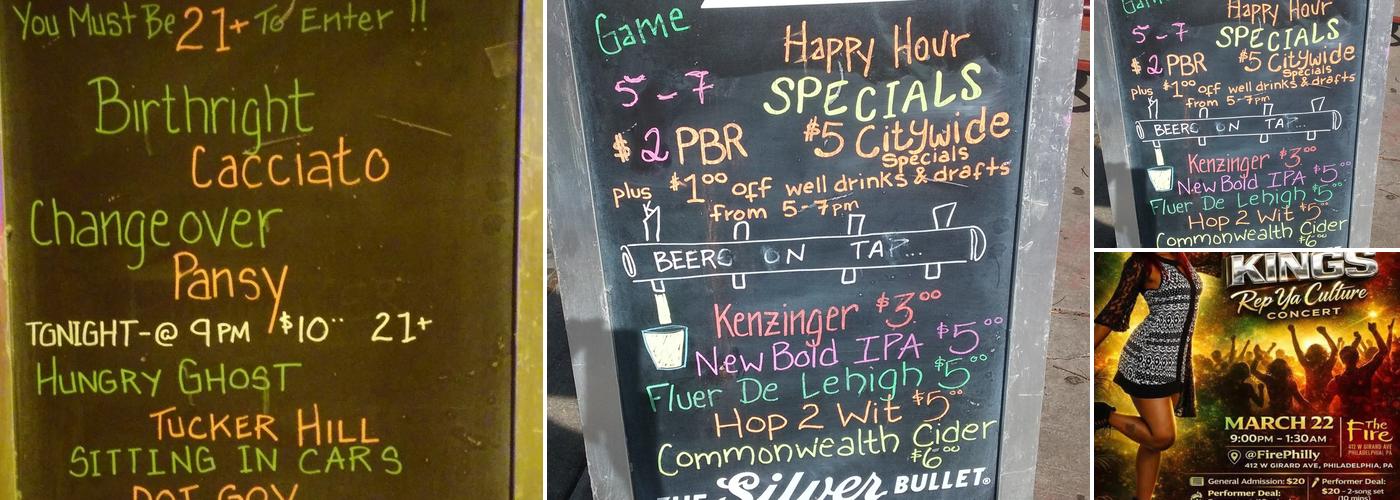 You Must Be 21+ To Enter !!
Birthright
Cacciato
Changeover
Pansy
TONIGHT-@ 9PM $10.. 21+
HUNGRY GHOST
TUCKER HILL
SITTING IN CARS
DOT GOV
Game
Happy Hour
5-7
SPECIALS
$2 PBR
$5 Citywide
Specials
plus $1.00 off well drinks & drafts
from 5-7pm
BEERS ON TAP...
Kenzinger $3.00
New Bold IPA $5.00
Fluer De Lehigh $5.00
Hop 2 Wit $5.00
Commonwealth Cider
$6.00
THE Silver BULLET®
Game
Happy Hour
5-7
SPECIALS
$2 PBR
$5 Citywide
Specials
plus $1.00 off well drinks & drafts
from 5-7pm
BEERS ON TAP...
Kenzinger $3.00
New Bold IPA $5.00
Fluer De Lehigh $5.00
Hop 2 Wit $5.00
Commonwealth Cider
$6.00
KINGS
Rep Ya Culture
CONCERT
MARCH 22
9:00PM - 1:30AM
@FirePhilly
412 W GIRARD AVE, PHILADELPHIA, PA
The Fire
412 W GIRARD AVE
PHILADELPHIA, PA
General Admission: $20
Performer Deal:
Performer Deal:
$20 - 2-song set
(10 mins)